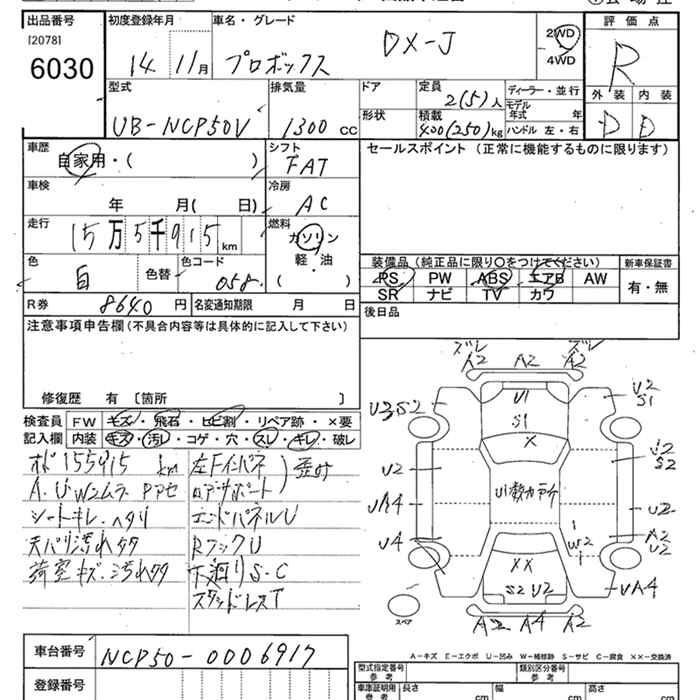 出品番号
[2078]
6030
初度登録年月
14 11月
車名・グレード
プロボックス DX-J
2WD
4WD
評価点
R
外装 内装
D D
型式
UB-NCP50V
排気量
1300 CC
ドア
形状
定員
2(5)人
積載
400(250)kg
ディーラー・並行
モデル
年式 年
ハンドル 左・右
車歴
自家用・( )
シフト
FAT
車検
年 月( 日)
冷房
AC
走行
15万5千915 km
燃料
ガソリン
軽・油
( )
色
白
色替
色コード
058
R券 8640 円
名変通知期限 月 日
セールスポイント (正常に機能するものに限ります)
装備品(純正品に限り○をつけてください)
PS PW ABS エアB AW
SR ナビ TV カワ
新車保証書
有・無
後日品
注意事項申告欄(不具合内容等は具体的に記入して下さい)
修復歴 有 [箇所 ]
検査員
記入欄
FW キズ・飛石・ヒビ割・リペア跡・×要
内装 キズ・汚レ・コゲ・穴・スレ・キレ・破レ
155915 km
左Fインパネ
ロアサポート
歪み
シートキレ・ヘタリ
エンドパネルU
天バリ汚れ
RフックU
荷室キズ・汚れ
下廻りS・C
スタッドレスT
ズレ ズレ
A2 A2 A2
U3S2
U1
S1
U2
S1
X
U2
S2
U2
U4
U2
W2
A2
U2
XX
S2 U2
UA4
A2 A4 A2
スペア
A−キズ E−エクボ U−凹み W−補修跡 S−サビ C−腐食 XX−交換済
車台番号
NCP50-0006917
登録番号
型式指定番号
参考
類別区分番号
参考
車庫証明用
参考
長さ cm
幅 cm
高さ cm